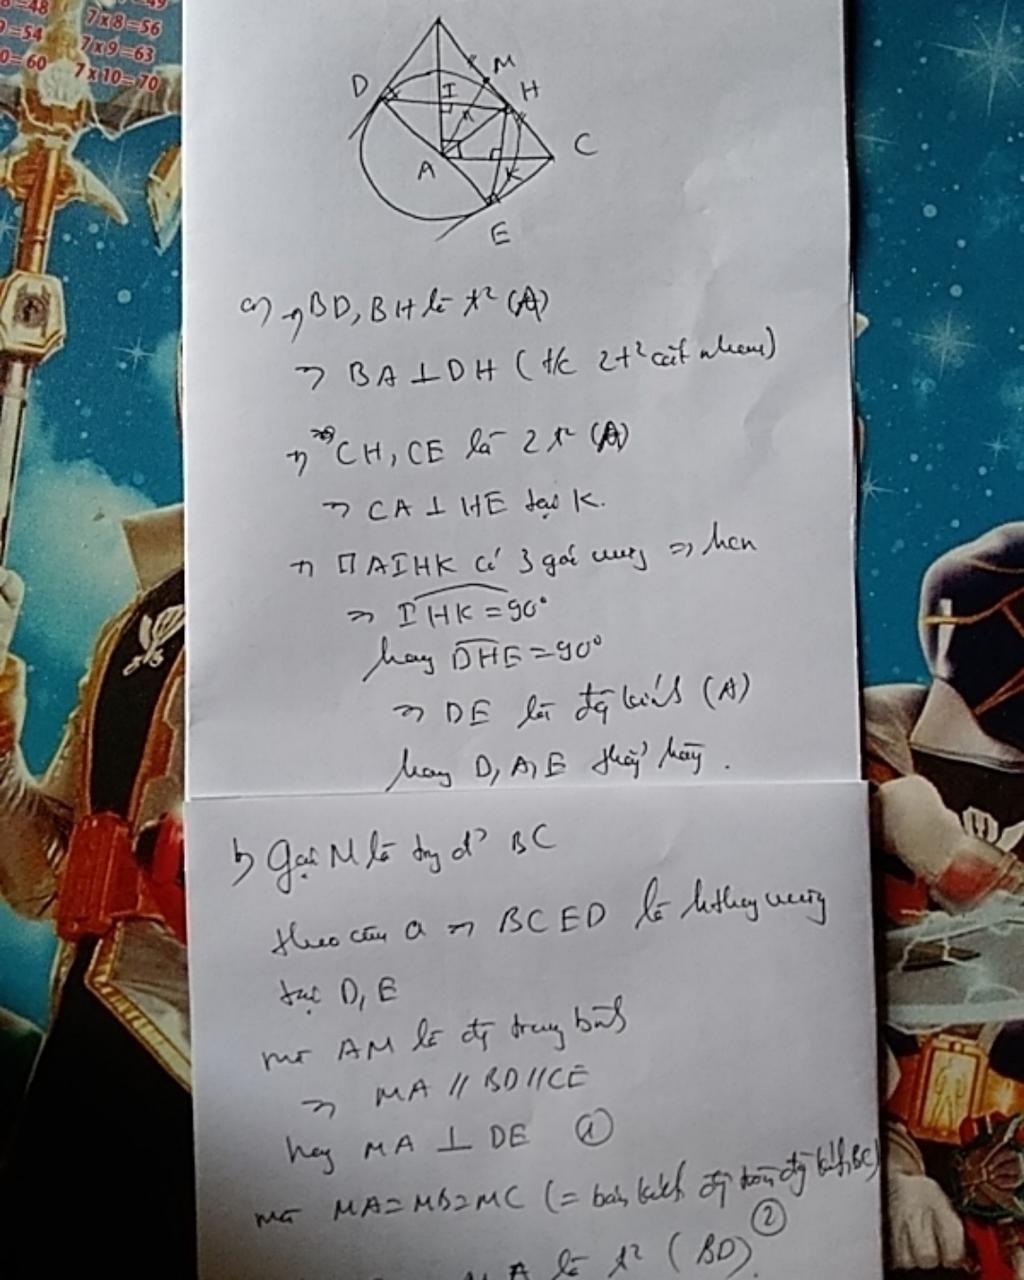 =48
7x8=56
=54
7x9=63
0=60
7x10=70
D
I
M
H
A
K
C
E
a) +) BD, BH là t² (A)
=> BA ⊥ DH (t/c 2t² cắt nhau)
+) CH, CE là 2 t² (A)
=> CA ⊥ HE tại K.
+) □AIHK có 3 góc vuông => hcn
=> IHK = 90°
hay DHE = 90°
=> DE là đg kính (A)
hay D, A, E thẳg hàg.
b) Gọi M là trg đ' BC
theo câu a => BCED là hthag vuông
tại D, E
mà AM là đg trung bình
=> MA // BD // CE
hay MA ⊥ DE ①
mà MA = MB = MC (= bán kính đg tròn đg kính BC) ②
A là t² (BD).